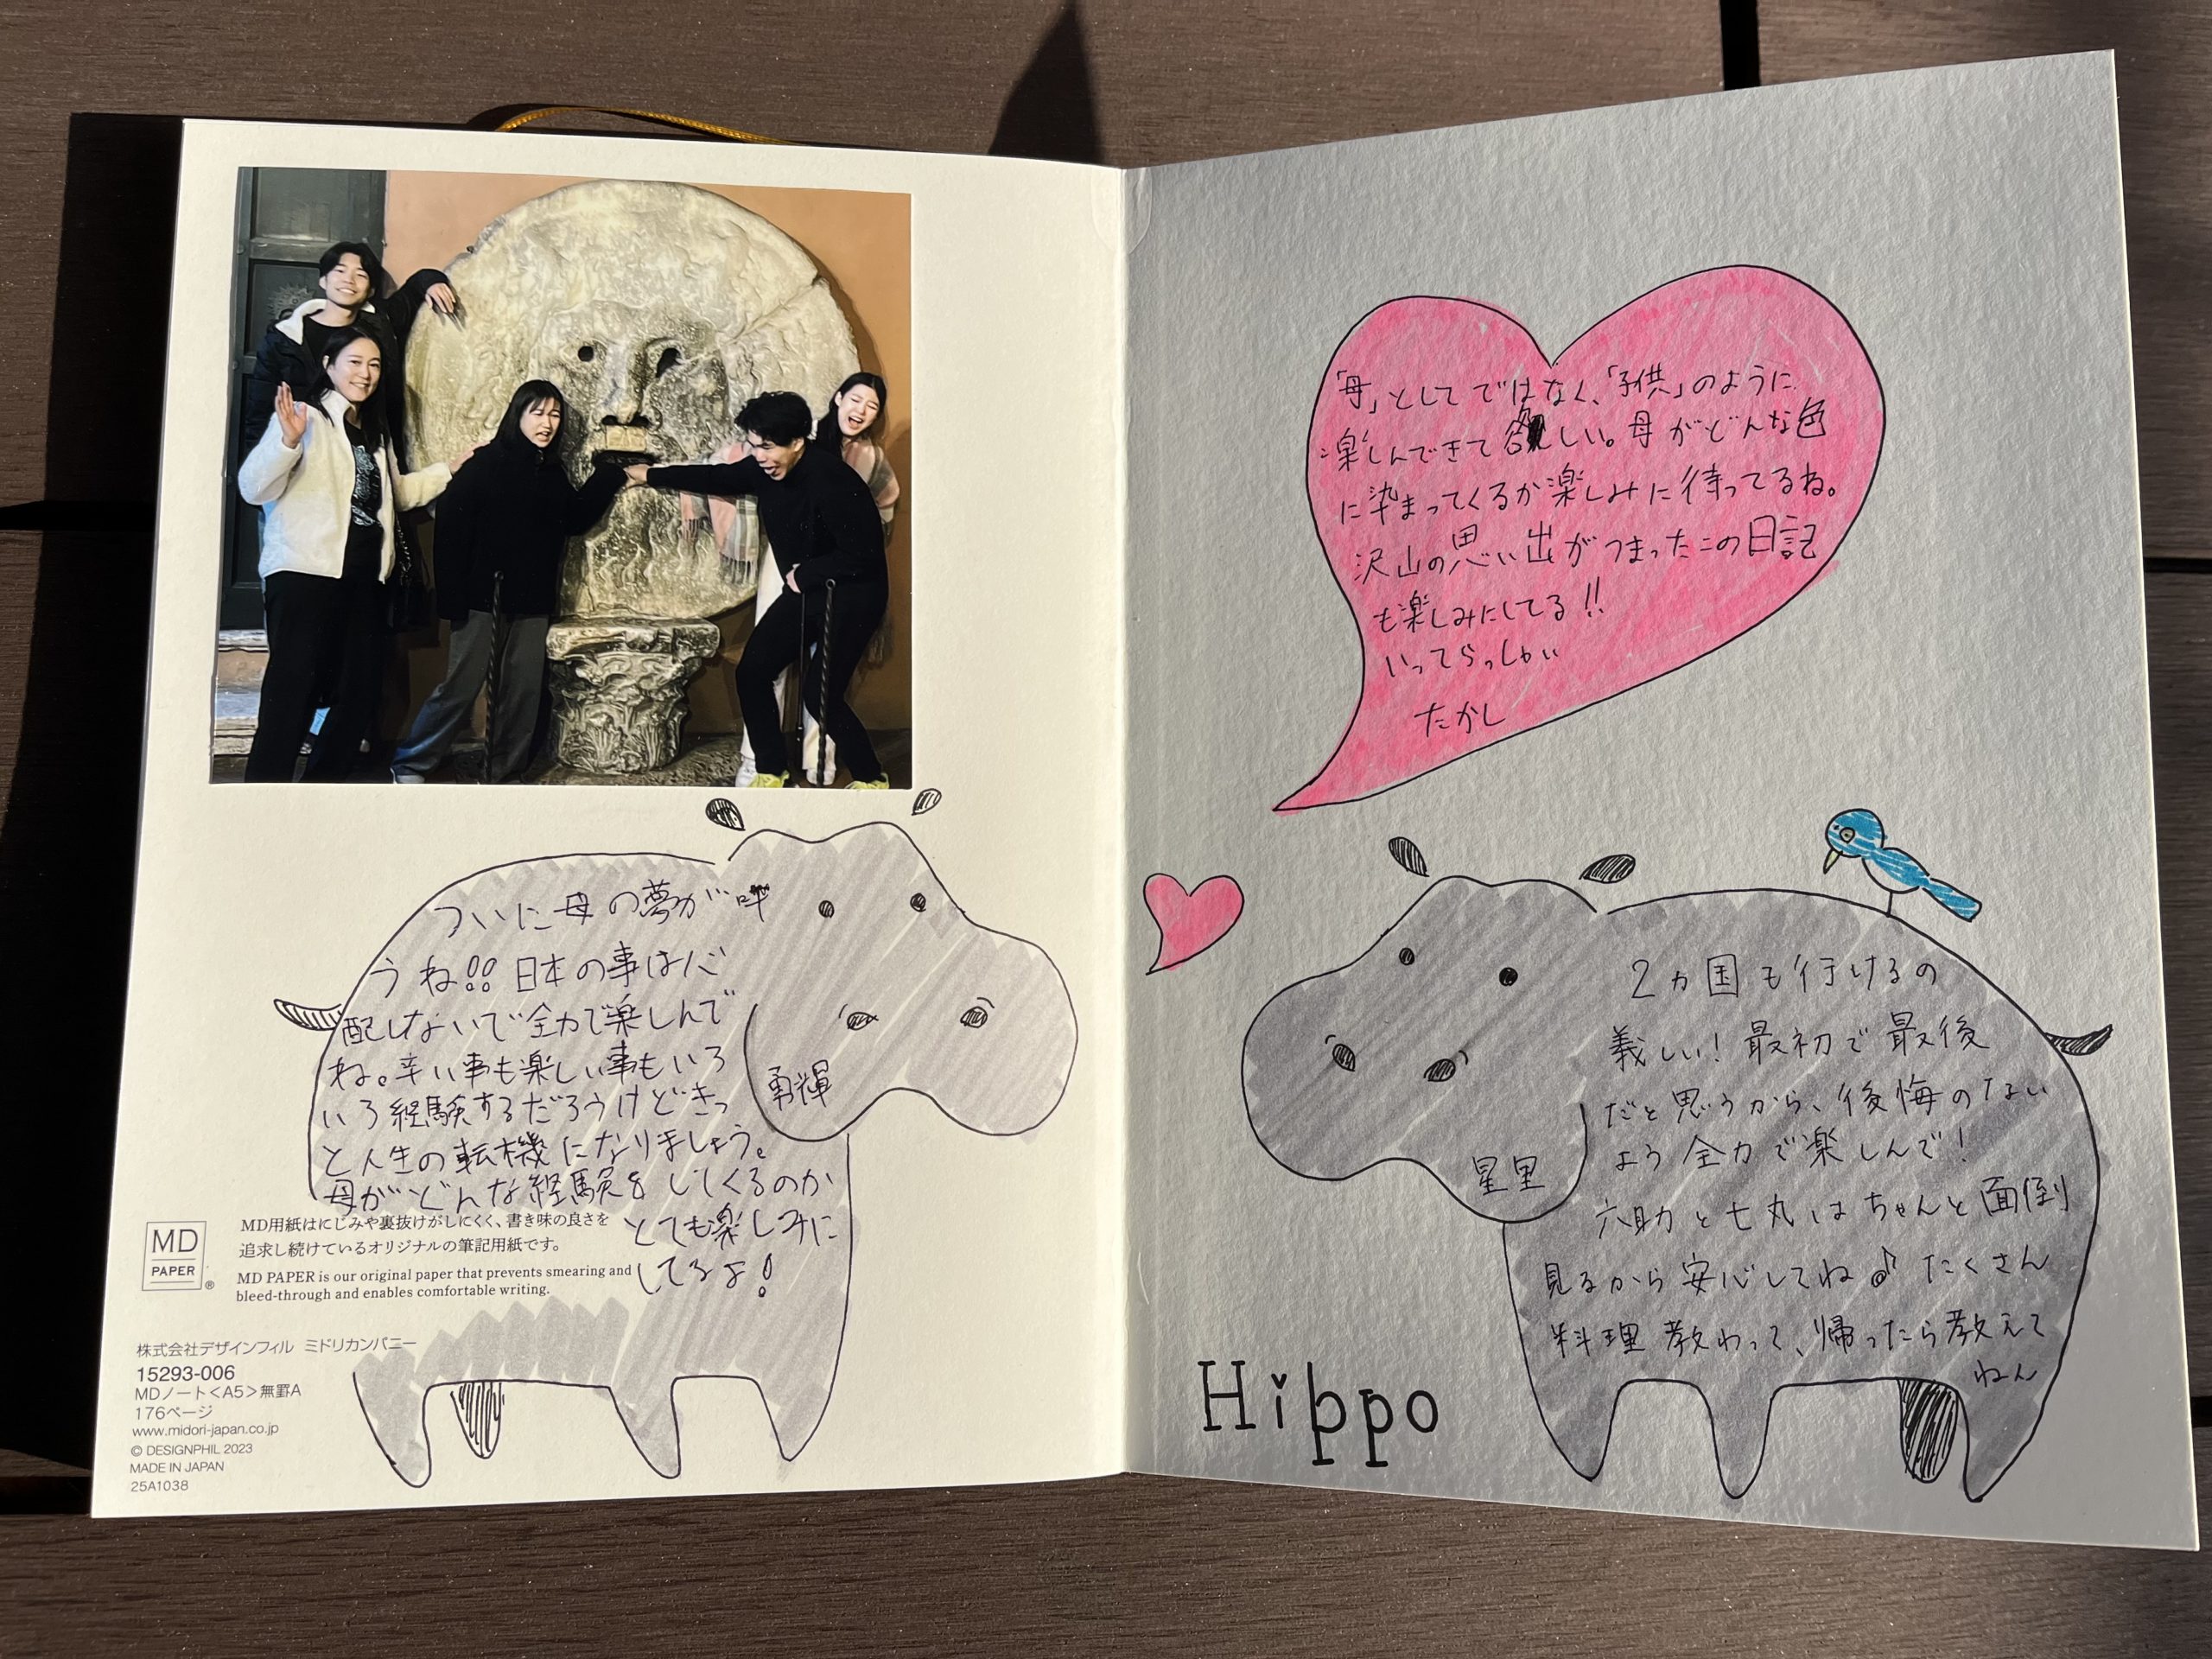 ついに母の夢が叶
うね!! 日本の事は心
配しないで全力で楽しんで
ね。辛い事も楽しい事もいろ
いろ経験するだろうけどきっ
と人生の転機になりましょう。
母がどんな経験をしてくるのか
とても楽しみに
してるよ!
勇輝
MD
PAPER
®
MD用紙はにじみや裏抜けがしにくく、書き味の良さを
追求し続けているオリジナルの筆記用紙です。
MD PAPER is our original paper that prevents smearing and
bleed-through and enables comfortable writing.
株式会社デザインフィル ミドリカンパニー
15293-006
MDノート<A5>無罫A
176ページ
www.midori-japan.co.jp
© DESIGNPHIL 2023
MADE IN JAPAN
25A1038
「母」としてではなく、「子供」のように
楽しんできて欲しい。母がどんな色
に染まってくるか楽しみに待ってるね。
沢山の思い出がつまったこの日記
も楽しみにしてる!!
いってらっしゃい
たかし
2ヵ国も行けるの
羨しい! 最初で最後
だと思うから、後悔のない
よう全力で楽しんで!
六助と七丸はちゃんと面倒
見るから安心してね♪ たくさん
料理教わって、帰ったら教えて
ねん
星里
Hippo